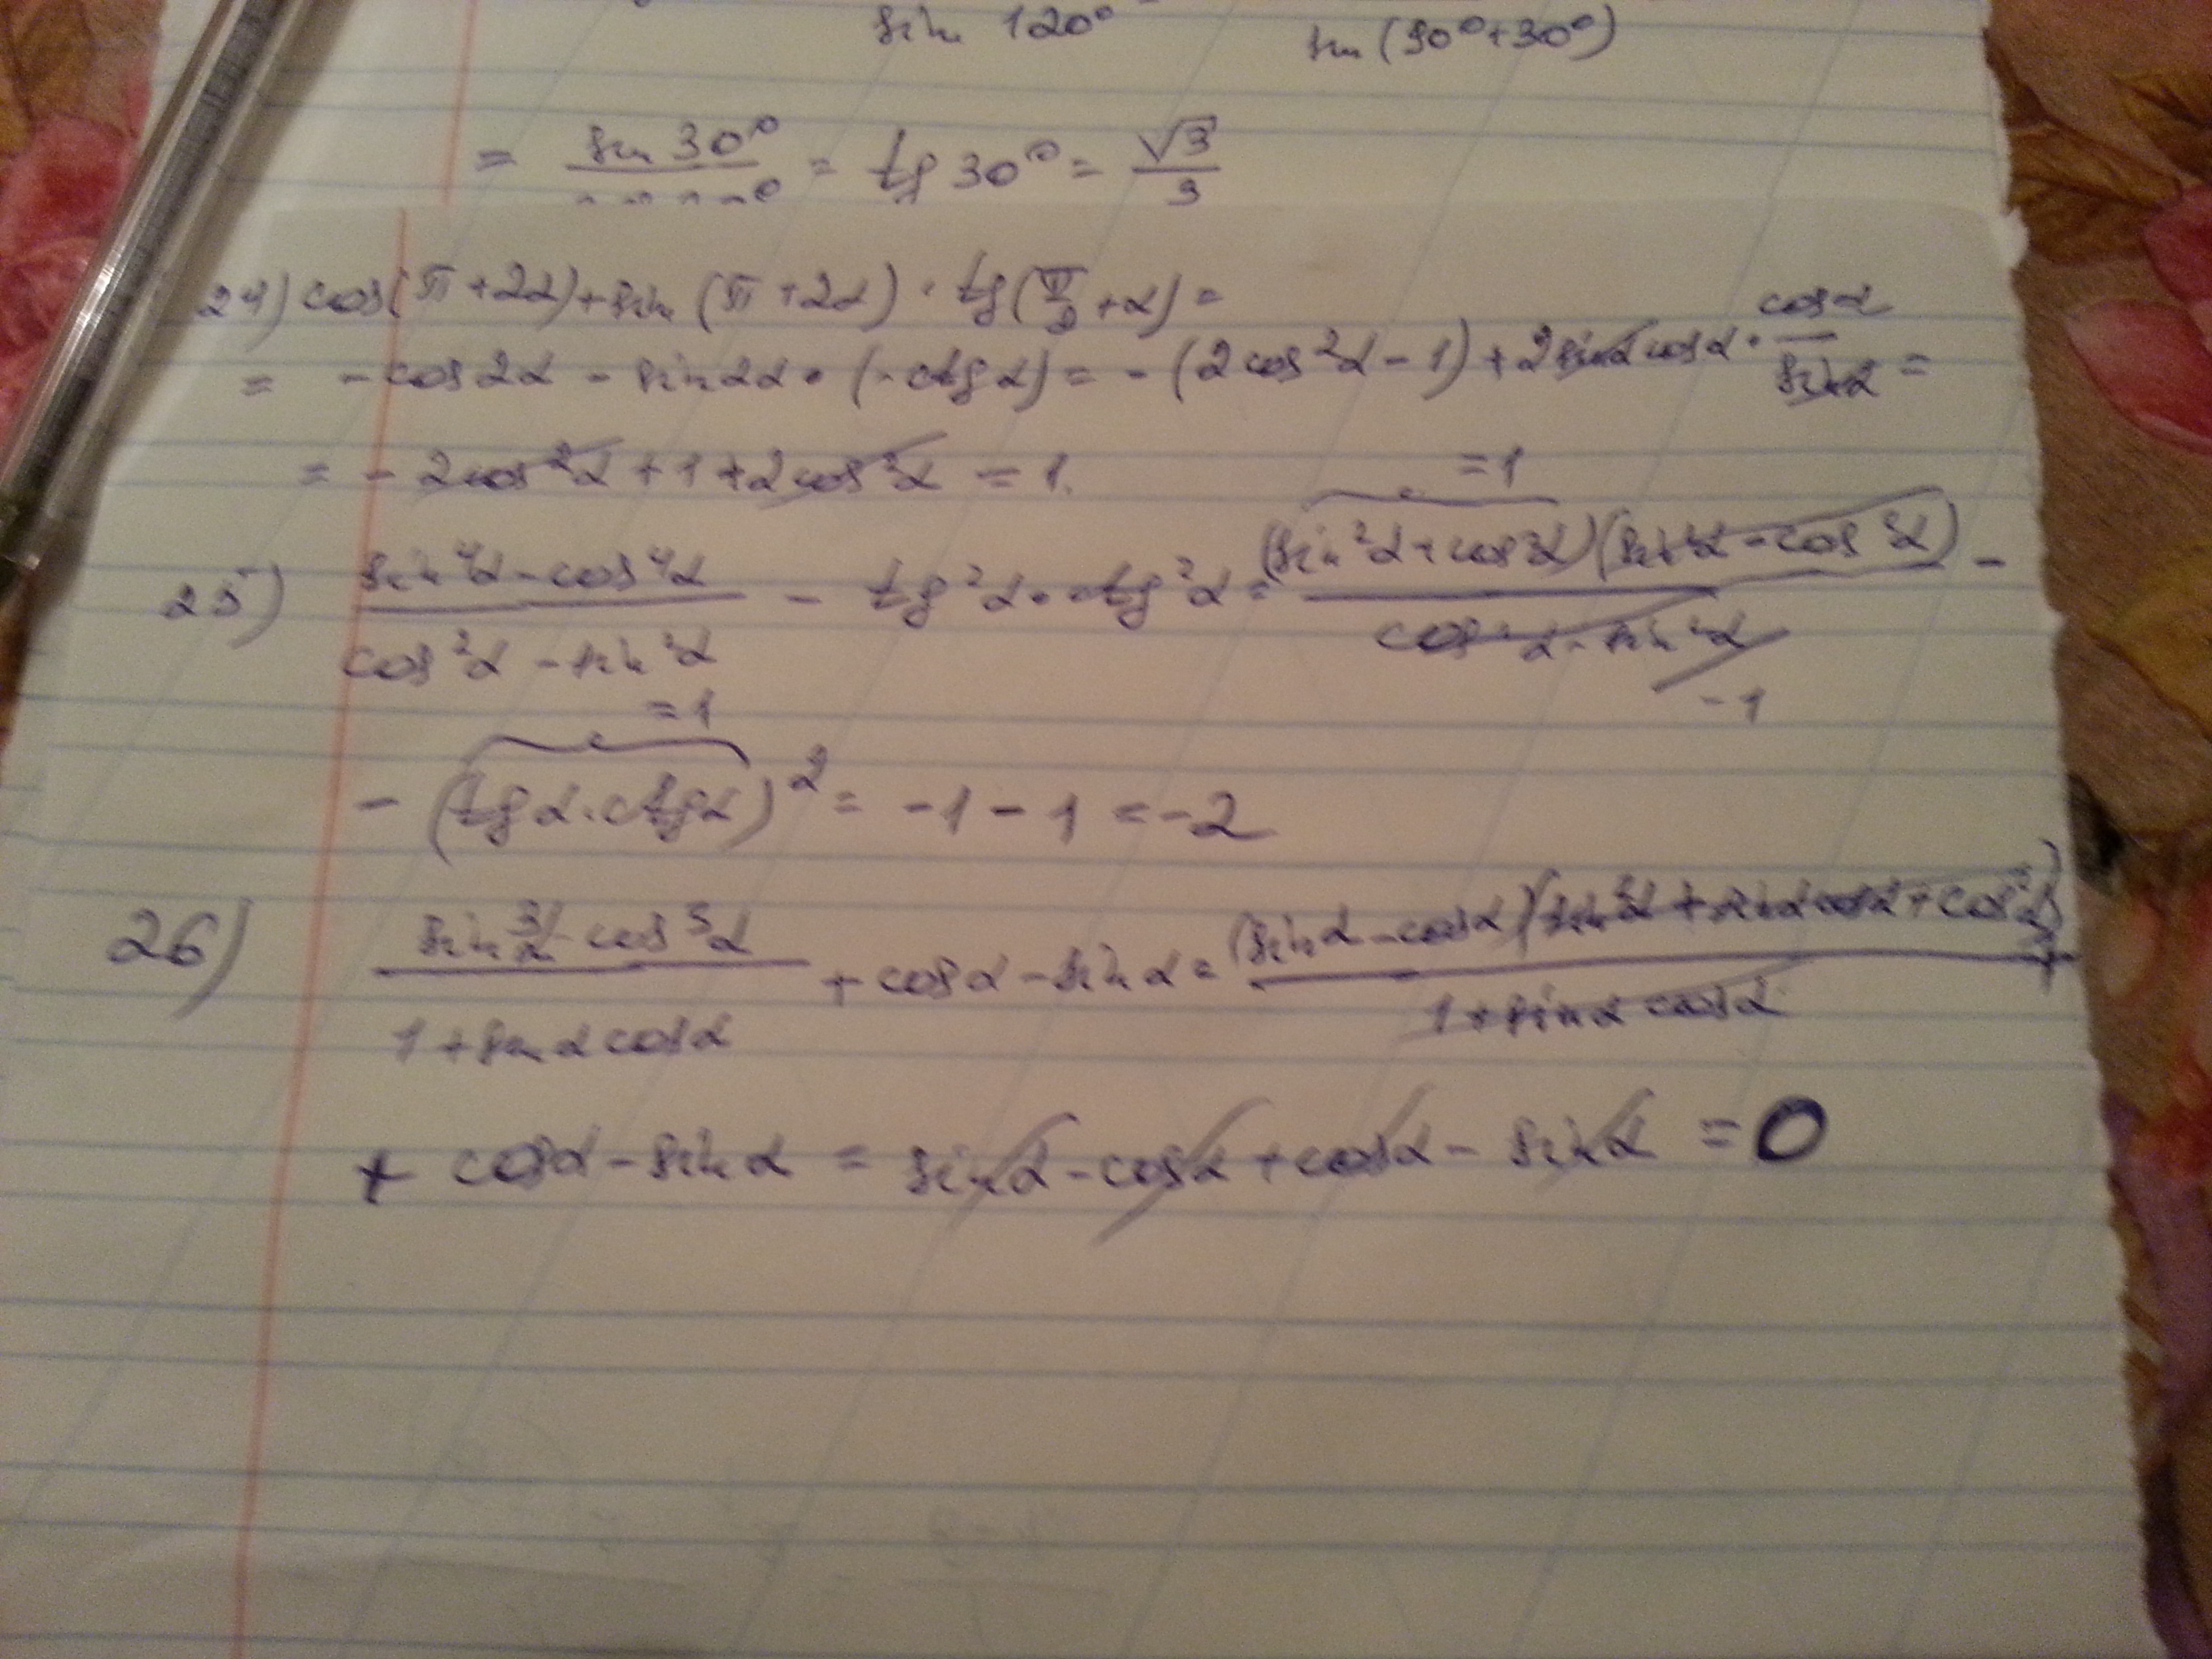 sin 120° sin (90°+30°)
= sin 30° / = tg 30° = √3/3
24) cos(π+2α)+sin(π+2α)·tg(π/2+α)=
= -cos2α - sin2α·(-ctgα) = -(2cos²α-1)+2sinαcosα·cosα/sinα =
= -2cos²α+1+2cos²α = 1.
=1
25) sin⁴α-cos⁴α / cos²α-sin²α - tg²α·ctg²α = (sin²α+cos²α)(sin²α-cos²α) / cos²α-sin²α -
-1
=1
-(tgα·ctgα)² = -1-1 = -2
26) sin³α-cos³α / 1+sinαcosα + cosα-sinα = (sinα-cosα)(sin²α+sinαcosα+cos²α) / 1+sinαcosα +
+ cosα-sinα = sinα-cosα+cosα-sinα = 0